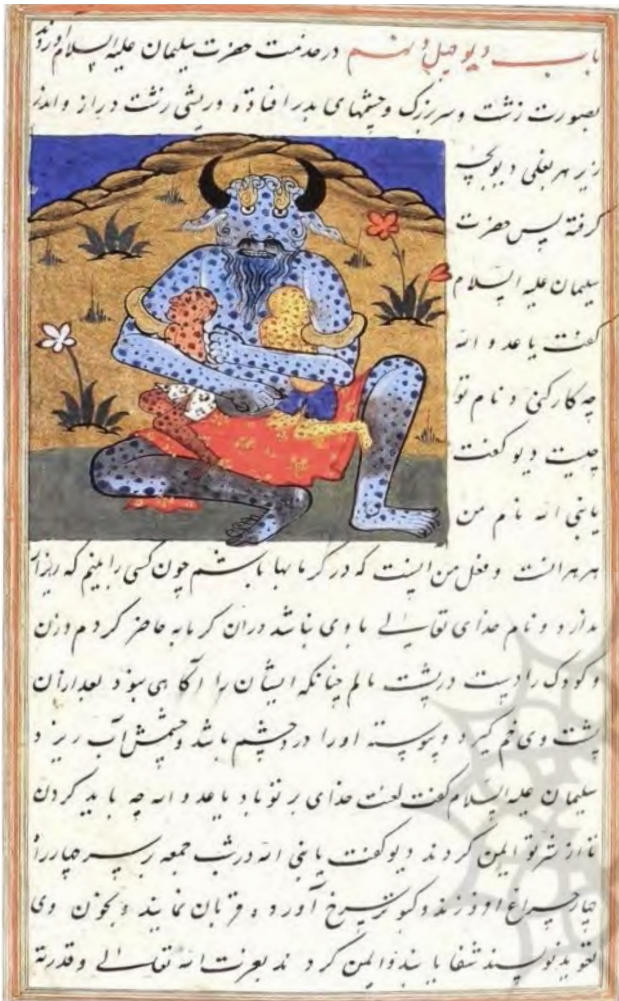 باب دیو چهل و نهم در خدمت حضرت سلیمان علیه السلام اوردند
بصورت زشت و سر بزرگ و چشمهای بدر افتاده و ریشی زشت دراز و اندر
زیر هر بغلی دیو بچه
گرفته پس حضرت
سلیمان علیه السلام
گفت یا عدو الله
چه کار کنی و نام تو
چیست دیو گفت
یا نبی الله نام من
است و فعل من اینست که در گرمابها باشم چون کسی را بینم که
ندارد و نام خدای تعالی با وی نباشد دران گرمابه حاضر کردم و زن
و کودک را دست در پشت مالم چنانکه ایشان را آگاهی نبود بعد ازان
پشت وی خم گیرد و پیوسته او را درد چشم باشد و چشمش آب ریزد
سلیمان علیه السلام گفت لعنت خدای بر تو باد یا عدو الله چه باید کردن
تا از شر تو ایمن کردند دیو گفت یا نبی الله در شب جمعه بر سر چهار راه
چهار چراغ اوروزند و کبوتر سرخ آورده قربان نمایند و بخون وی
تعویذ نویسند شفا یابند و ایمن کردند بعزت الله تعالی و قدرته